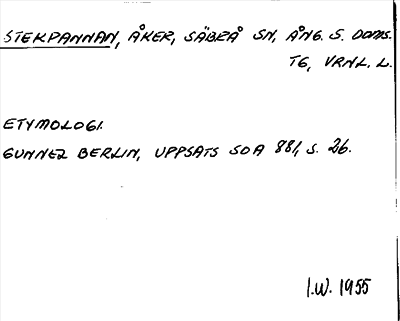 STEKPANNAN, ÅKER, SÄBRÅ SN, ÅNG. S. DOMS.
TG, VRNL. L.
ETYMOLOGI.
GUNNER BERLIN, UPPSATS SOA 881, S. 26.
I.W. 1955